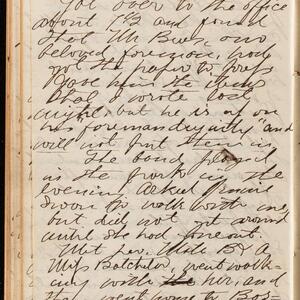 Got over to the office
about 7 1/2 and found
that Mr
beloved foreman, had
got the paper to press
Gave him the items
that I wrote last
night, but he is on
his foreman dignity "and
will not put them in
The band played
in the park in the
evening, Asked
down to walk with me
but did not get around
until she had gone out.
Met her, with B & A
Miss Batchelor, went walk-
ing with her, and
then went home to